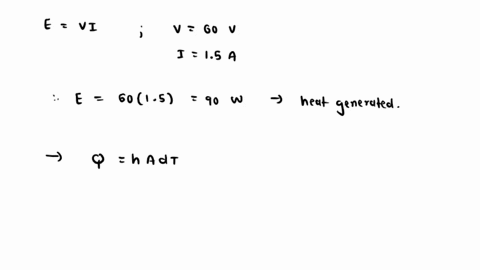 E = VI ; V = 60 V
I = 1.5 A
∴ E = 60(1.5) = 90 W → heat generated.
→ Q = h A dT